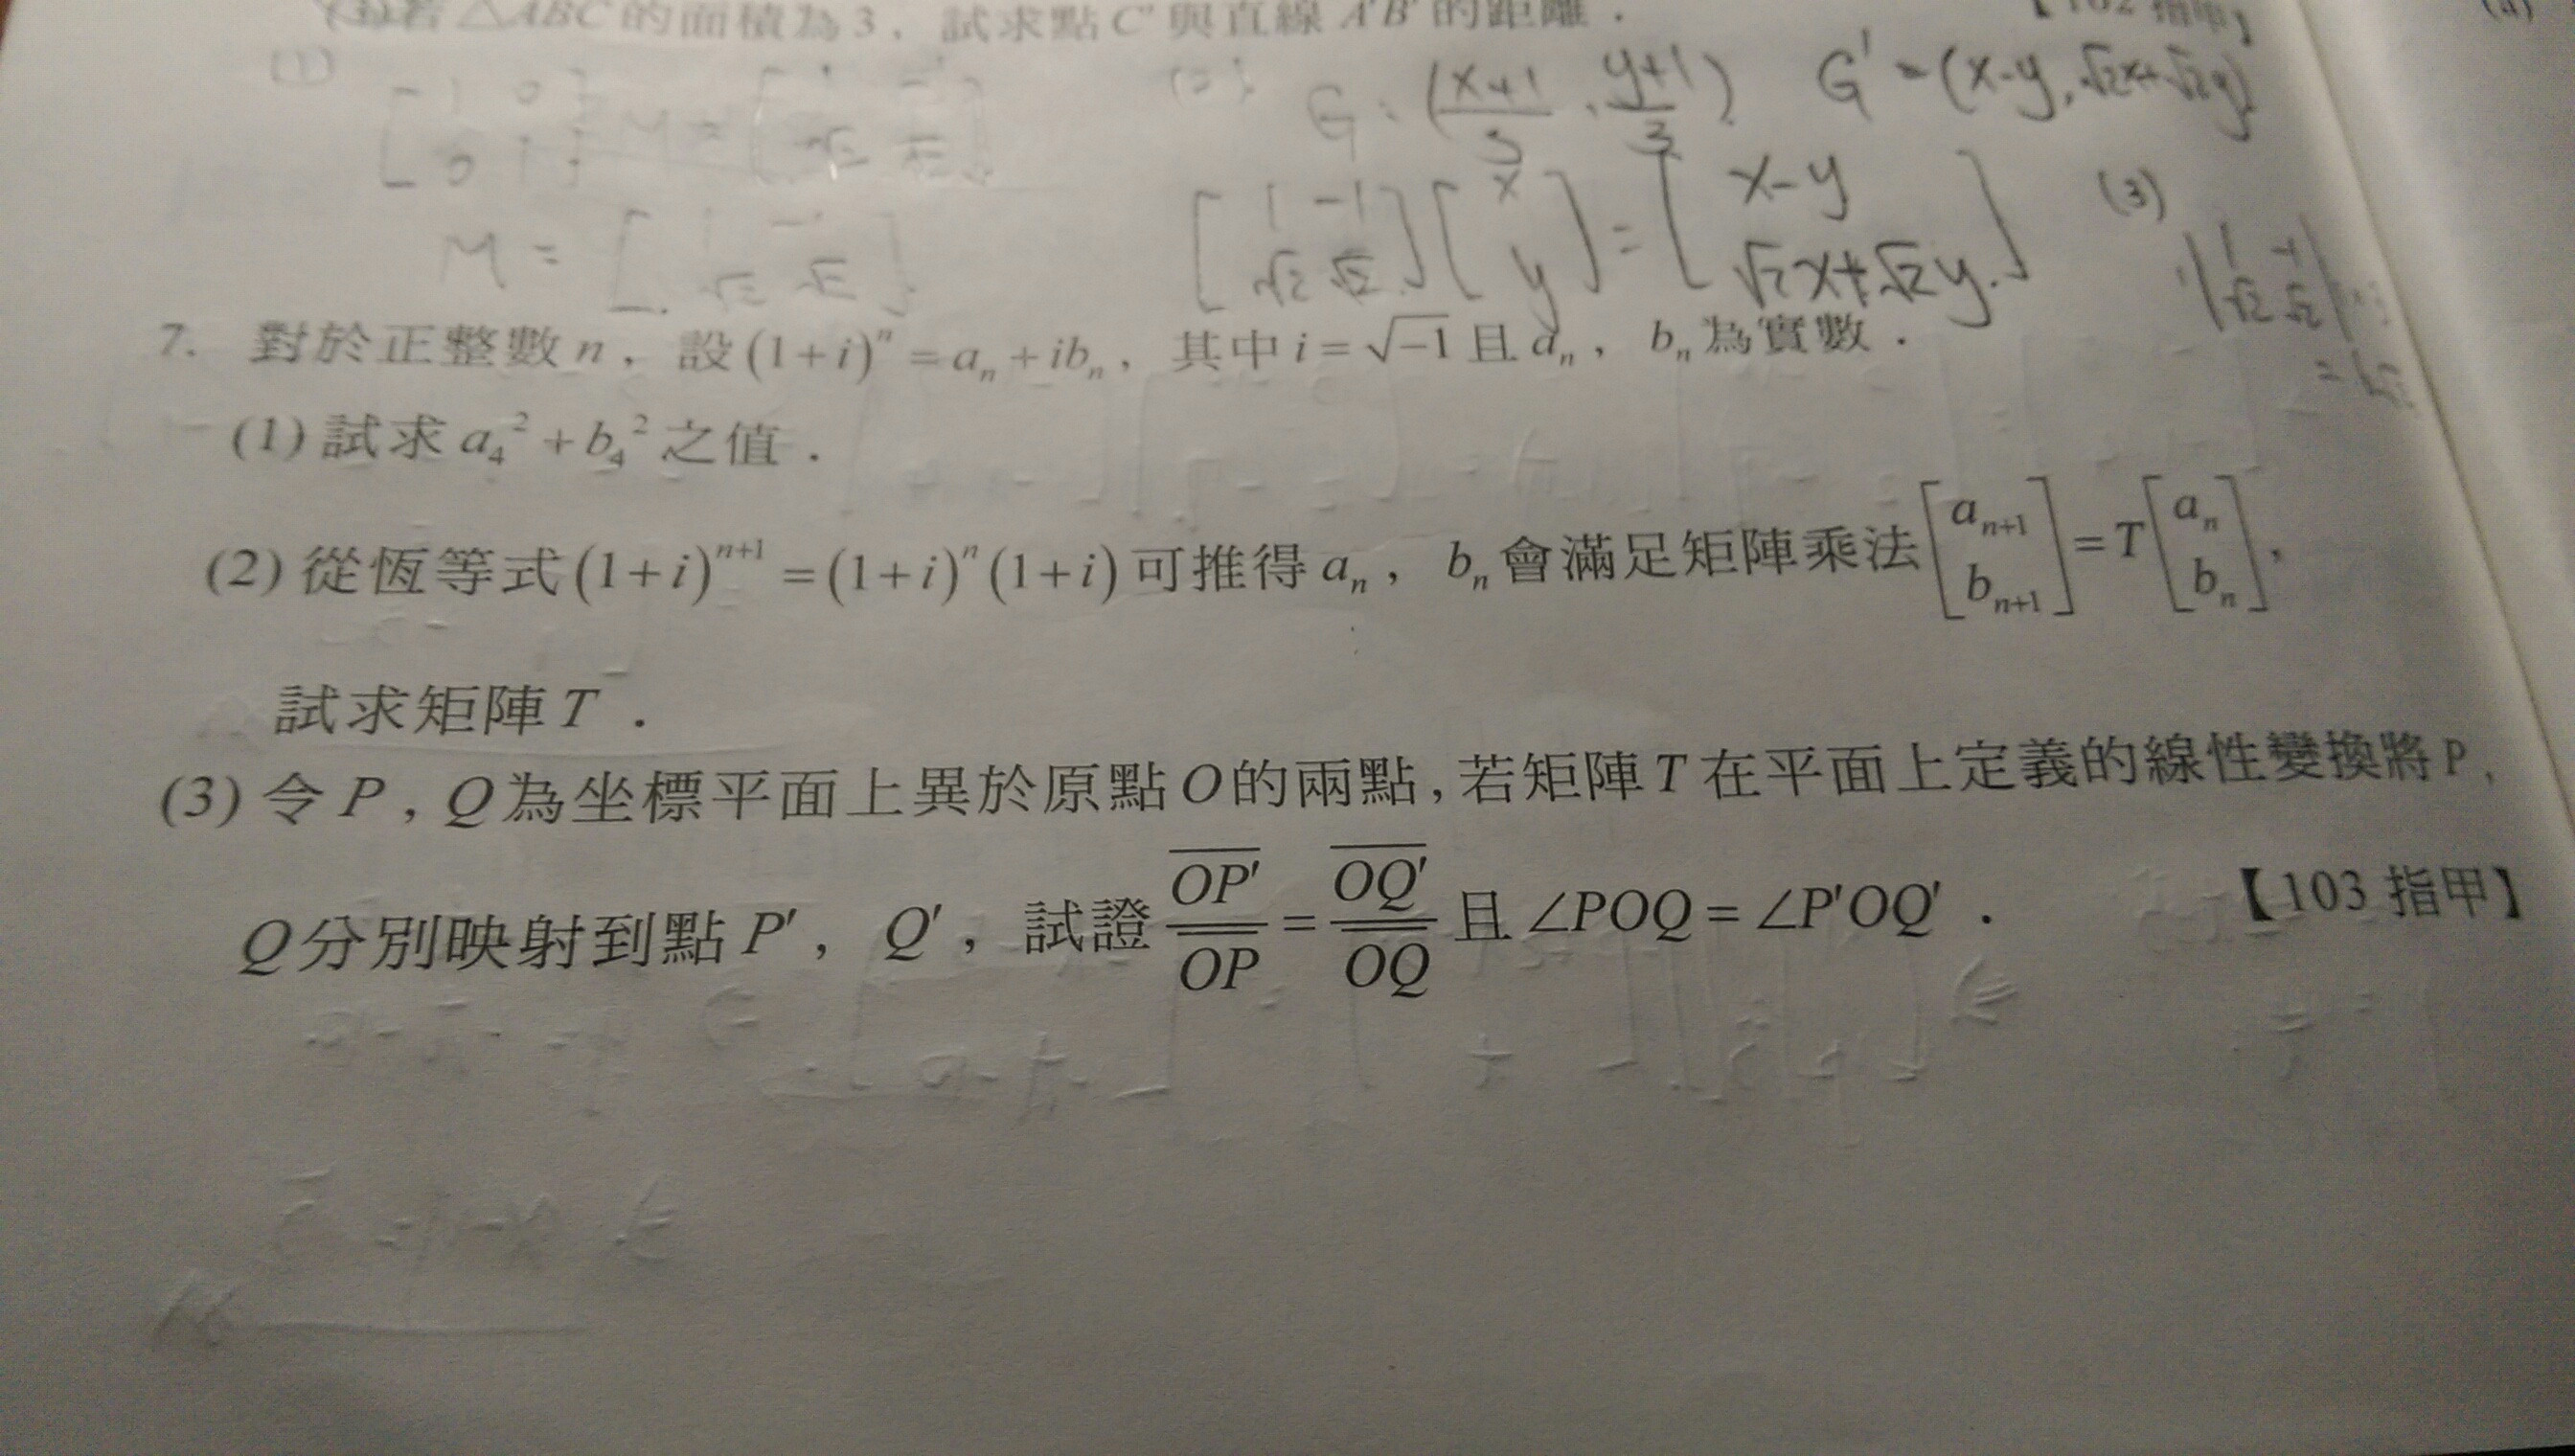 (3)若△ABC的面積為3，試求點C'與直線A'B'的距離．【102 指甲】
(1) (2) G: (x+1/3, y+1/3) G' = (x-y, √2x+√2y)
M = [1 -1; √2 √2] [1 -1; √2 √2][x; y] = [x-y; √2x+√2y] (3)
7. 對於正整數n，設(1+i)ⁿ = aₙ + ibₙ，其中 i = √-1 且 aₙ，bₙ為實數．
(1) 試求 a₄² + b₄² 之值．
(2) 從恆等式(1+i)ⁿ⁺¹ = (1+i)ⁿ(1+i) 可推得 aₙ，bₙ會滿足矩陣乘法 [aₙ₊₁; bₙ₊₁] = T [aₙ; bₙ]，
試求矩陣T．
(3) 令P，Q為坐標平面上異於原點O的兩點，若矩陣T在平面上定義的線性變換將P，
Q分別映射到點P'，Q'，試證 OP'/OP = OQ'/OQ 且∠POQ = ∠P'OQ'．【103 指甲】